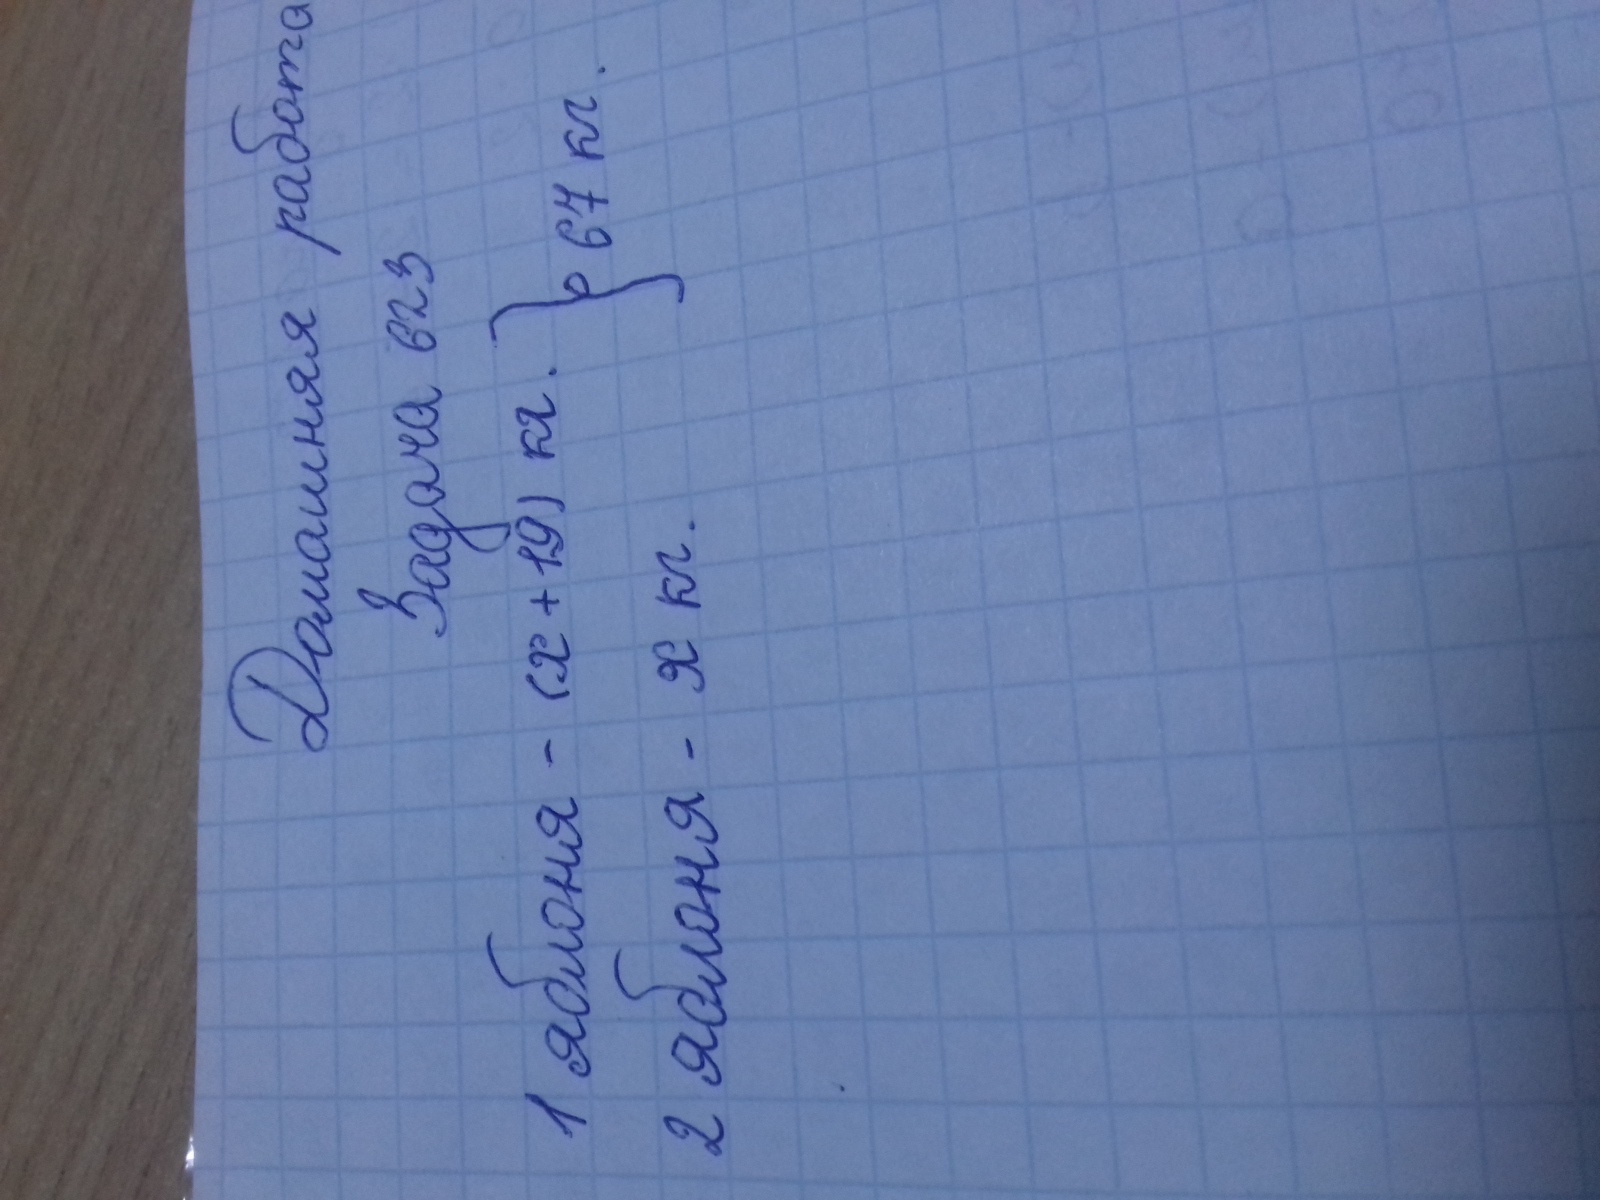 Домашняя работа
Задача 623
1 яблоня - (х + 19) кг. } 67 кг.
2 яблоня - х кг.